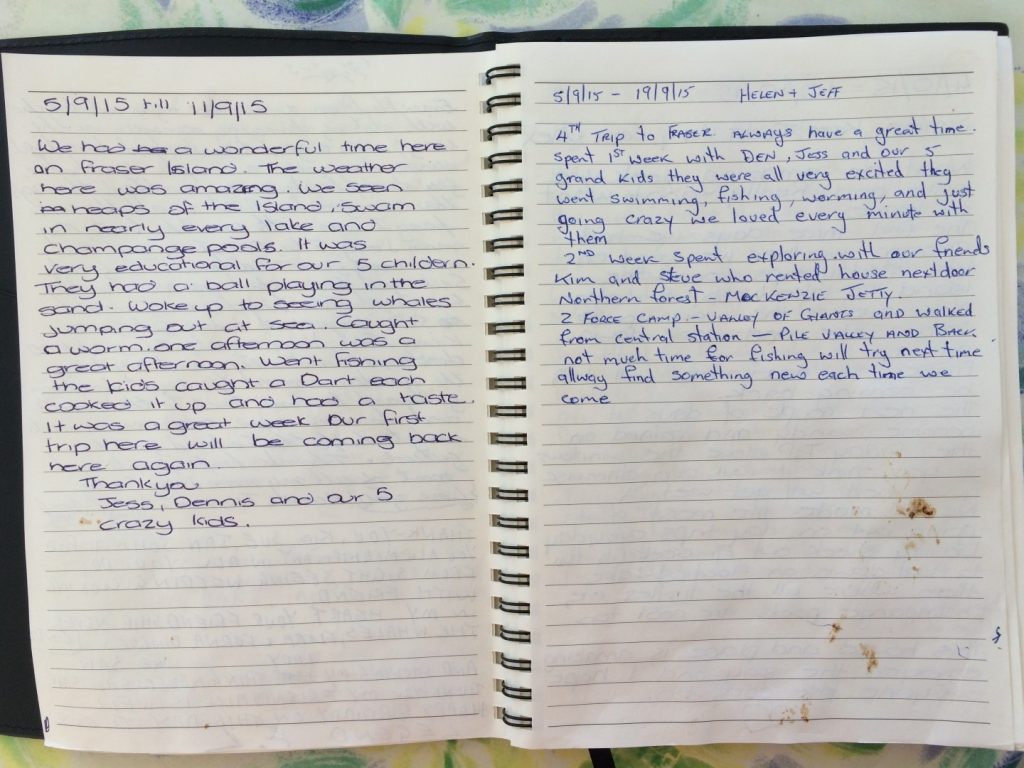 5/9/15 till 11/9/15
We had a wonderful time here
on Fraser Island. The weather
here was amazing. We seen
heaps of the Island, Swam
in nearly every lake and
champange pools. It was
very educational for our 5 childern.
They had a ball playing in the
sand. Woke up to seeing whales
jumping out at sea. Caught
a worm. one afternoon was a
great afternoon. Went fishing
the kids caught a Dart each
cooked it up and had a taste.
It was a great week our first
trip here will be coming back
here again.
Thankyou
Jess, Dennis and our 5
crazy kids.
5/9/15 - 19/9/15 HELEN + JEFF
4TH TRIP to FRASER ALWAYS have a great time.
spent 1ST week with DEN, Jess and our 5
grand kids they were all very excited they
went swimming, fishing, worming, and just
going crazy we loved every minute with
them
2ND week spent exploring with our friends
Kim and Steve who rented house nextdoor
Northern forest - MacKENZIE JETTY.
2 FORCE CAMP - VALLEY OF GIANTS and walked
from central station - PILE VALLEY AND BACK
not much time for fishing will try next time
allway find something new each time we
come